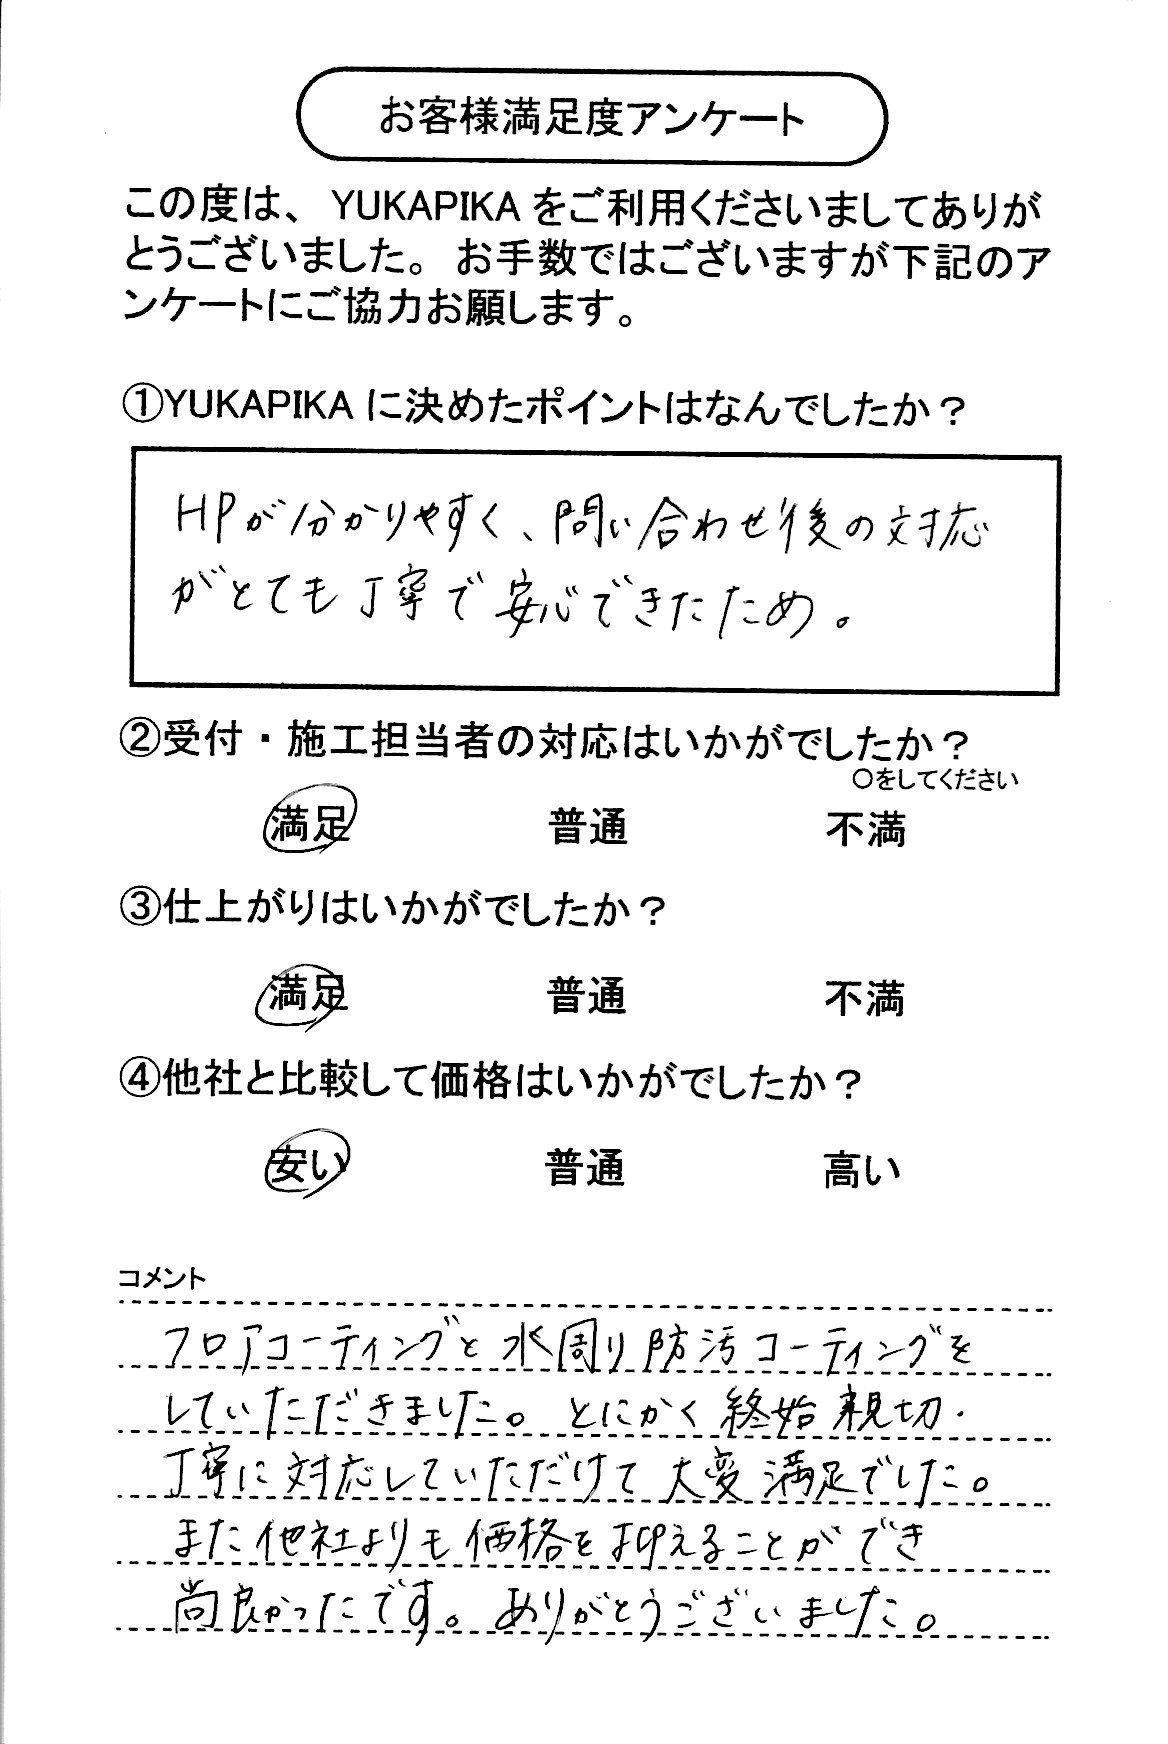 お客様満足度アンケート
この度は、YUKAPIKAをご利用くださいましてありが
とうございました。お手数ではございますが下記のア
ンケートにご協力お願します。
①YUKAPIKAに決めたポイントはなんでしたか？
HPが分かりやすく、問い合わせ後の対応
がとても丁寧で安心できたため。
②受付・施工担当者の対応はいかがでしたか？
○をしてください
満足 普通 不満
③仕上がりはいかがでしたか？
満足 普通 不満
④他社と比較して価格はいかがでしたか？
安い 普通 高い
コメント
フロアコーティングと水周り防汚コーティングを
していただきました。とにかく終始親切・
丁寧に対応していただけて大変満足でした。
また他社よりも価格を抑えることができ
尚良かったです。ありがとうございました。